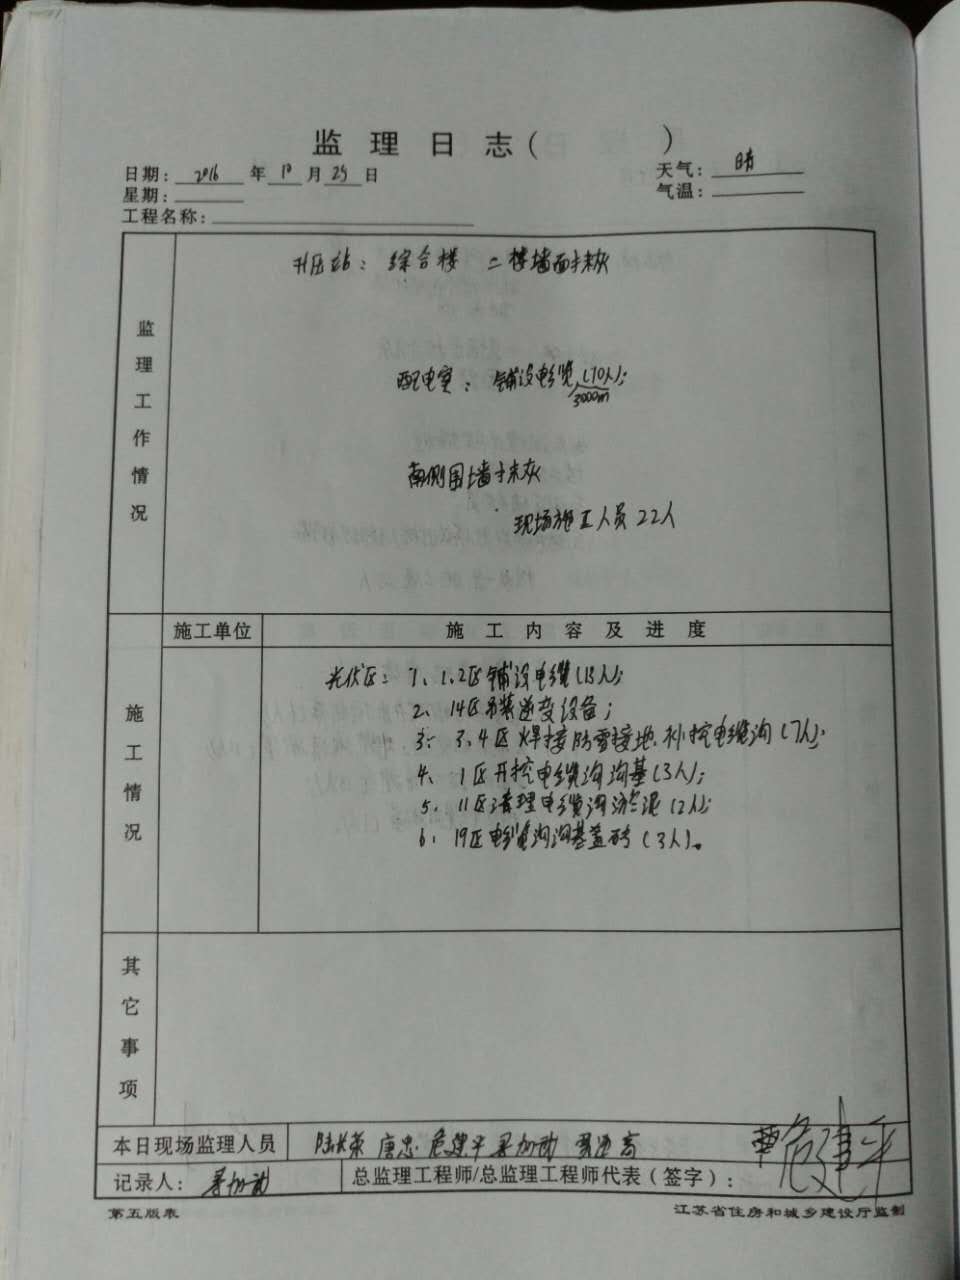 监 理 日 志 (            )
日期：2016 年 10 月 29 日
天气：晴
星期：
气温：
工程名称：
监理工作情况
升压站：综合楼 二楼墙面抹灰
配电室：铺设电缆(10人)；
3000m
南侧围墙抹灰
现场施工人员22人
施工单位
施 工 内 容 及 进 度
施工情况
光伏区：1、1.2区铺设电缆(13人)；
2、14区吊装逆变设备；
3、3.4区焊接防雷接地、补挖电缆沟(7人)；
4、1区开挖电缆沟沟基(3人)；
5、11区清理电缆沟淤泥(2人)；
6、19区电缆沟沟基盖砖(3人)。
其它事项
本日现场监理人员
陆长荣 唐忠 危建平
记录人：
总监理工程师/总监理工程师代表（签字）：
危建平
第五版表
江苏省住房和城乡建设厅监制